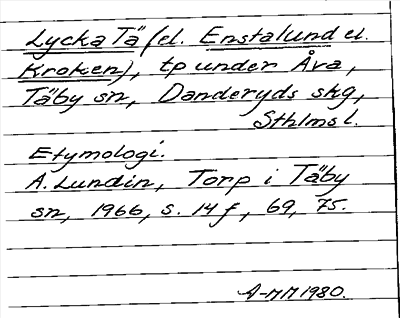 Lycka Tä (el. Enstalund el.
Kroken), tp under Åva,
Täby sn, Danderyds skg,
Sthlms l.
Etymologi.
A. Lundin, Torp i Täby
sn, 1966, s. 14 f, 69, 75.
A-MM 1980.